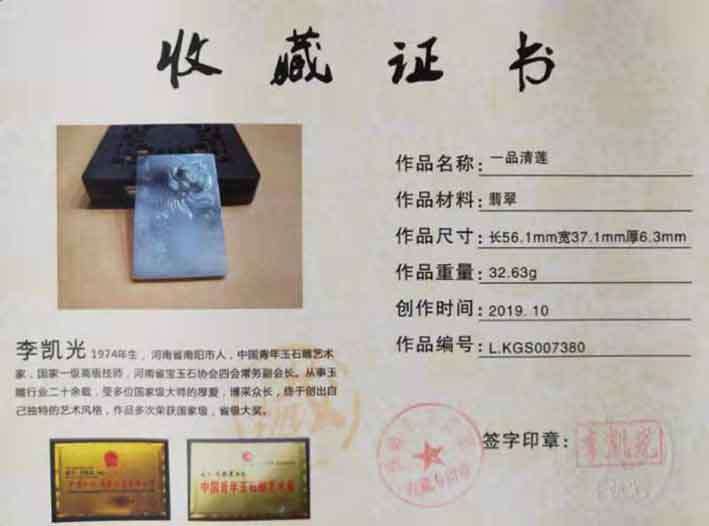 收藏证书
作品名称：一品清莲
作品材料：翡翠
作品尺寸：长56.1mm宽37.1mm厚6.3mm
作品重量：32.63g
创作时间：2019.10
作品编号：L.KGS007380
李凯光 1974年生，河南省南阳市人，中国青年玉石雕艺术
家，国家一级高级技师，河南省宝玉石协会四会常务副会长。从事玉
雕行业二十余载，受多位国家级大师的厚爱，博采众长，终于创出自
己独特的艺术风格，作品多次荣获国家级，省级大奖。
签字印章：
李凯光
中国青年玉石雕艺术家